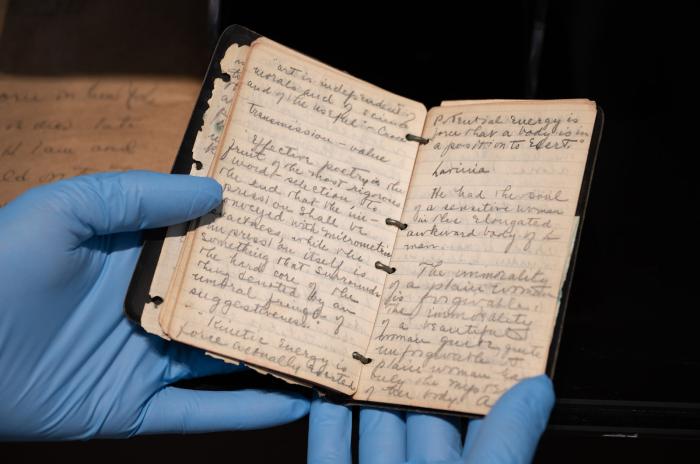 "art is independent of
morals and of science
and of the useful" - Croce
Transmission - value
"Effective poetry is the
fruit of the most rigorous
word-selection, to
the end that the im-
pression shall be
conveyed with micrometric
exactness, while the
impression itself is
something that surrounds
the hard core of the
thing denoted by an
umbral fringe of
suggestiveness."
"Kinetic Energy is
force actually exerted
Potential Energy is
force that a body is in
a position to Exert."
Lavinia
He had the soul
of a sensitive woman
in the elongated
awkward body of a
man.
The immorality
of a plain woman
is forgivable,
the immorality
of a beautiful
woman quite, quite
unforgivable
plain woman
of her body. A